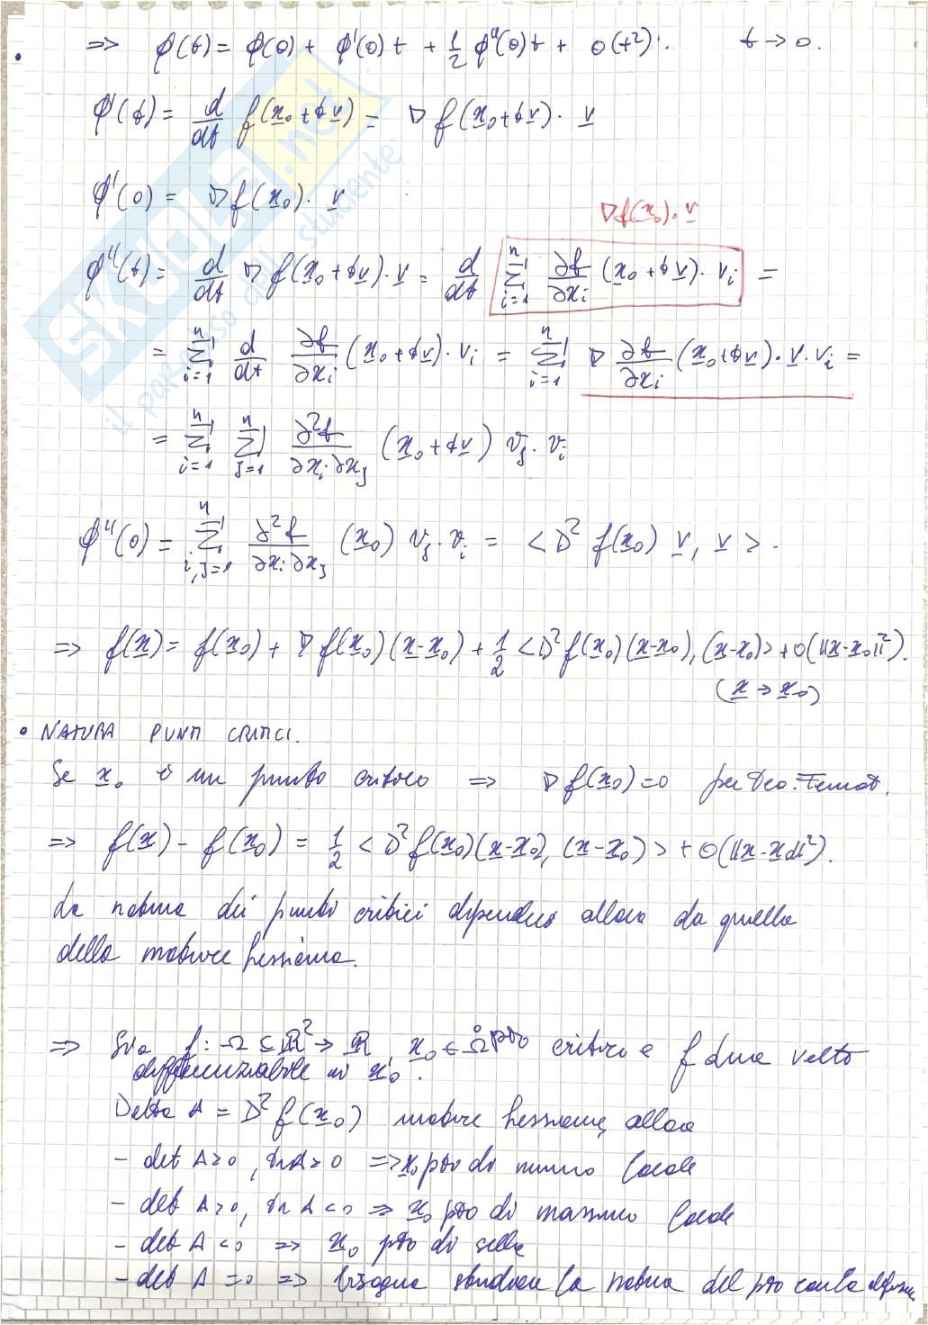 => φ(t) = φ(0) + φ'(0) t + 1/2 φ''(0) t + o(t²). t → 0.
φ'(t) = d/dt f(x₀+tv) = ∇f(x₀+tv) · v
φ'(0) = ∇f(x₀) · v
∇f(x₀) · v
φ''(t) = d/dt ∇f(x₀+tv) · v = d/dt Σᵢ₌₁ⁿ ∂f/∂xᵢ (x₀+tv) · vᵢ =
= Σᵢ₌₁ⁿ d/dt ∂f/∂xᵢ (x₀+tv) · vᵢ = Σᵢ₌₁ⁿ ∇ ∂f/∂xᵢ (x₀+tv) · v · vᵢ =
= Σᵢ₌₁ⁿ Σⱼ₌₁ⁿ ∂²f/∂xᵢ·∂xⱼ (x₀+tv) vⱼ · vᵢ
φ''(0) = Σᵢ,ⱼ₌₁ⁿ ∂²f/∂xᵢ∂xⱼ (x₀) vⱼ · vᵢ = <D²f(x₀) v, v>.
=> f(x) = f(x₀) + ∇f(x₀)(x-x₀) + 1/2 <D²f(x₀)(x-x₀), (x-x₀)> + o(||x-x₀||²).
(x → x₀)
• NATURA PUNTI CRITICI.
Se x₀ è un punto critico => ∇f(x₀)=0 per teo. Fermat.
=> f(x) - f(x₀) = 1/2 <D²f(x₀)(x-x₀), (x-x₀)> + o(||x-x₀||²).
La natura dei punti critici dipende allora da quella
della matrice hessiana.
=> Sia f: Ω ⊆ ℝ² → ℝ x₀ ∈ Ω̊ pto critico e f due volte
differenziabile in x₀.
Detta A = D²f(x₀) matrice hessiana, allora
- det A>0, tr A>0 => x₀ pto di minimo locale
- det A>0, tr A<0 => x₀ pto di massimo locale
- det A<0 => x₀ pto di sella
- det A=0 => bisogna studiare la natura del pto con la
SKUOLA.net
il paradiso dello studente